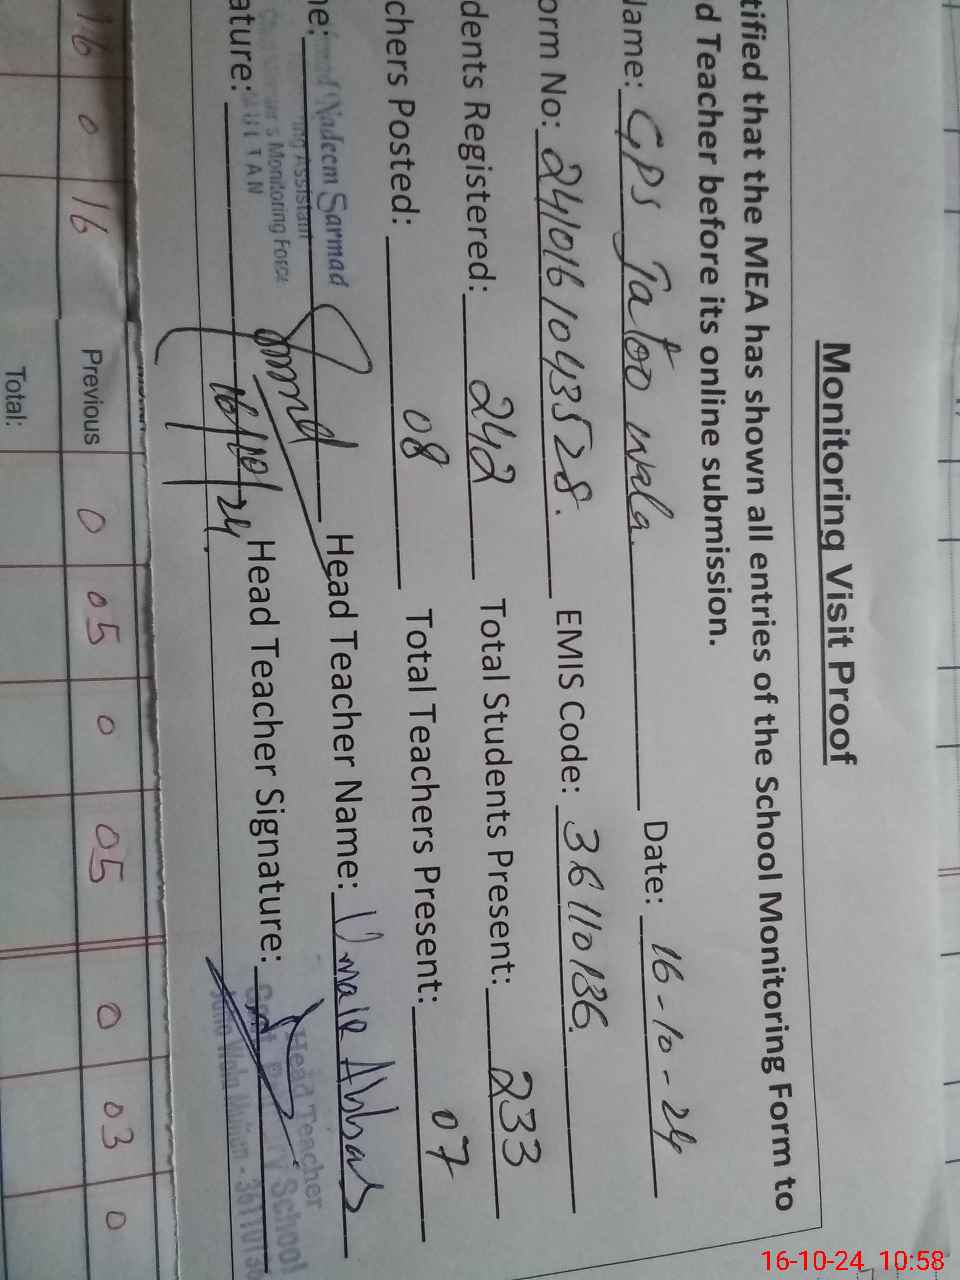 Monitoring Visit Proof
tified that the MEA has shown all entries of the School Monitoring Form to
d Teacher before its online submission.
Name: GPS Jatoo wala Date: 16-10-24
orm No: 2410161043528. EMIS Code: 36110186
dents Registered: 242 Total Students Present: 233
chers Posted: 08 Total Teachers Present: 07
ne: Nadeem Sarmad Head Teacher Name: Umair Abbas
ing Assistant
's Monitoring Force
LTAN
ature: 16/10/24 Head Teacher Signature:
Head Teacher
School
Wala Multan - 361101
16 0 16 Previous 0 05 0 05 0 03 0
Total:
16-10-24 10:58